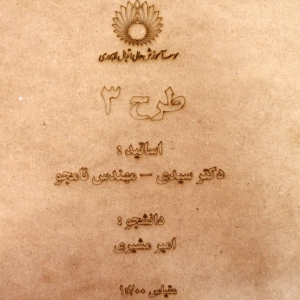 موسسه آموزش عالی اقبال لاهوری
طرح ۳
اساتید :
دکتر سیدی – مهندس نامجو
دانشجو :
امیر مشیری
مقیاس ۱:۲۰۰